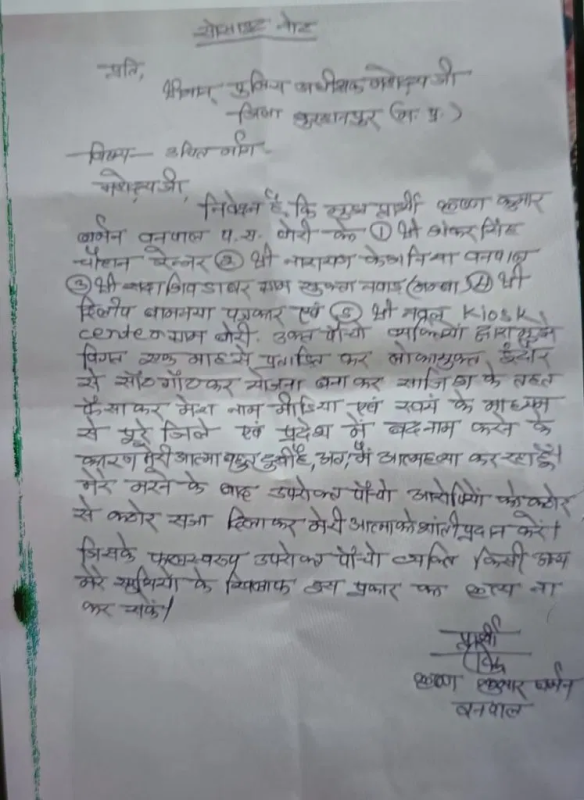 सोसाइट नोट
प्रति,
श्रीमान् पुलिस अधीक्षक महोदय जी
जिला बुरहानपुर (म. प्र.)
विषय - उचित मांग
महोदय जी,
निवेदन है, कि मुझ प्रार्थी कृष्ण कुमार
बर्मन वनपाल प. स. बोरी के ① श्री ओंकर सिंह
चौहान रेन्जर ② श्री नारायण वनपाल
③ श्री सदाशिव डावर ग्राम (अम्बा) ④ श्री
दिलीप बामनया पत्रकार एवं ⑤ श्री नवल Kiosk
center ग्राम बोरी. उक्त पाँचो व्यक्तियो द्वारा मुझे
विगत एक माह से प्रताड़ित कर लोकायुक्त इंदौर
से साँठगाँठ कर योजना बना कर साजिश के तहत
फँसा कर मेरा नाम मीडिया एवं स्वयं के माध्यम
से पूरे जिले एवं प्रदेश में बदनाम करने के
कारण मेरी आत्मा बहुत दुखी है, अतः मैं आत्महत्या कर रहा हूँ।
मेरे मरने के बाद उपरोक्त पाँचो आरोपियों को कठोर
से कठोर सजा दिलाकर मेरी आत्मा को शांती प्रदान करें।
जिसके फलस्वरुप उपरोक्त पाँचो व्यक्ति किसी अन्य
मेरे साथियो के खिलाफ इस प्रकार का कृत्य ना
कर सकें।
प्रार्थी
कृष्ण कुमार बर्मन
वनपाल